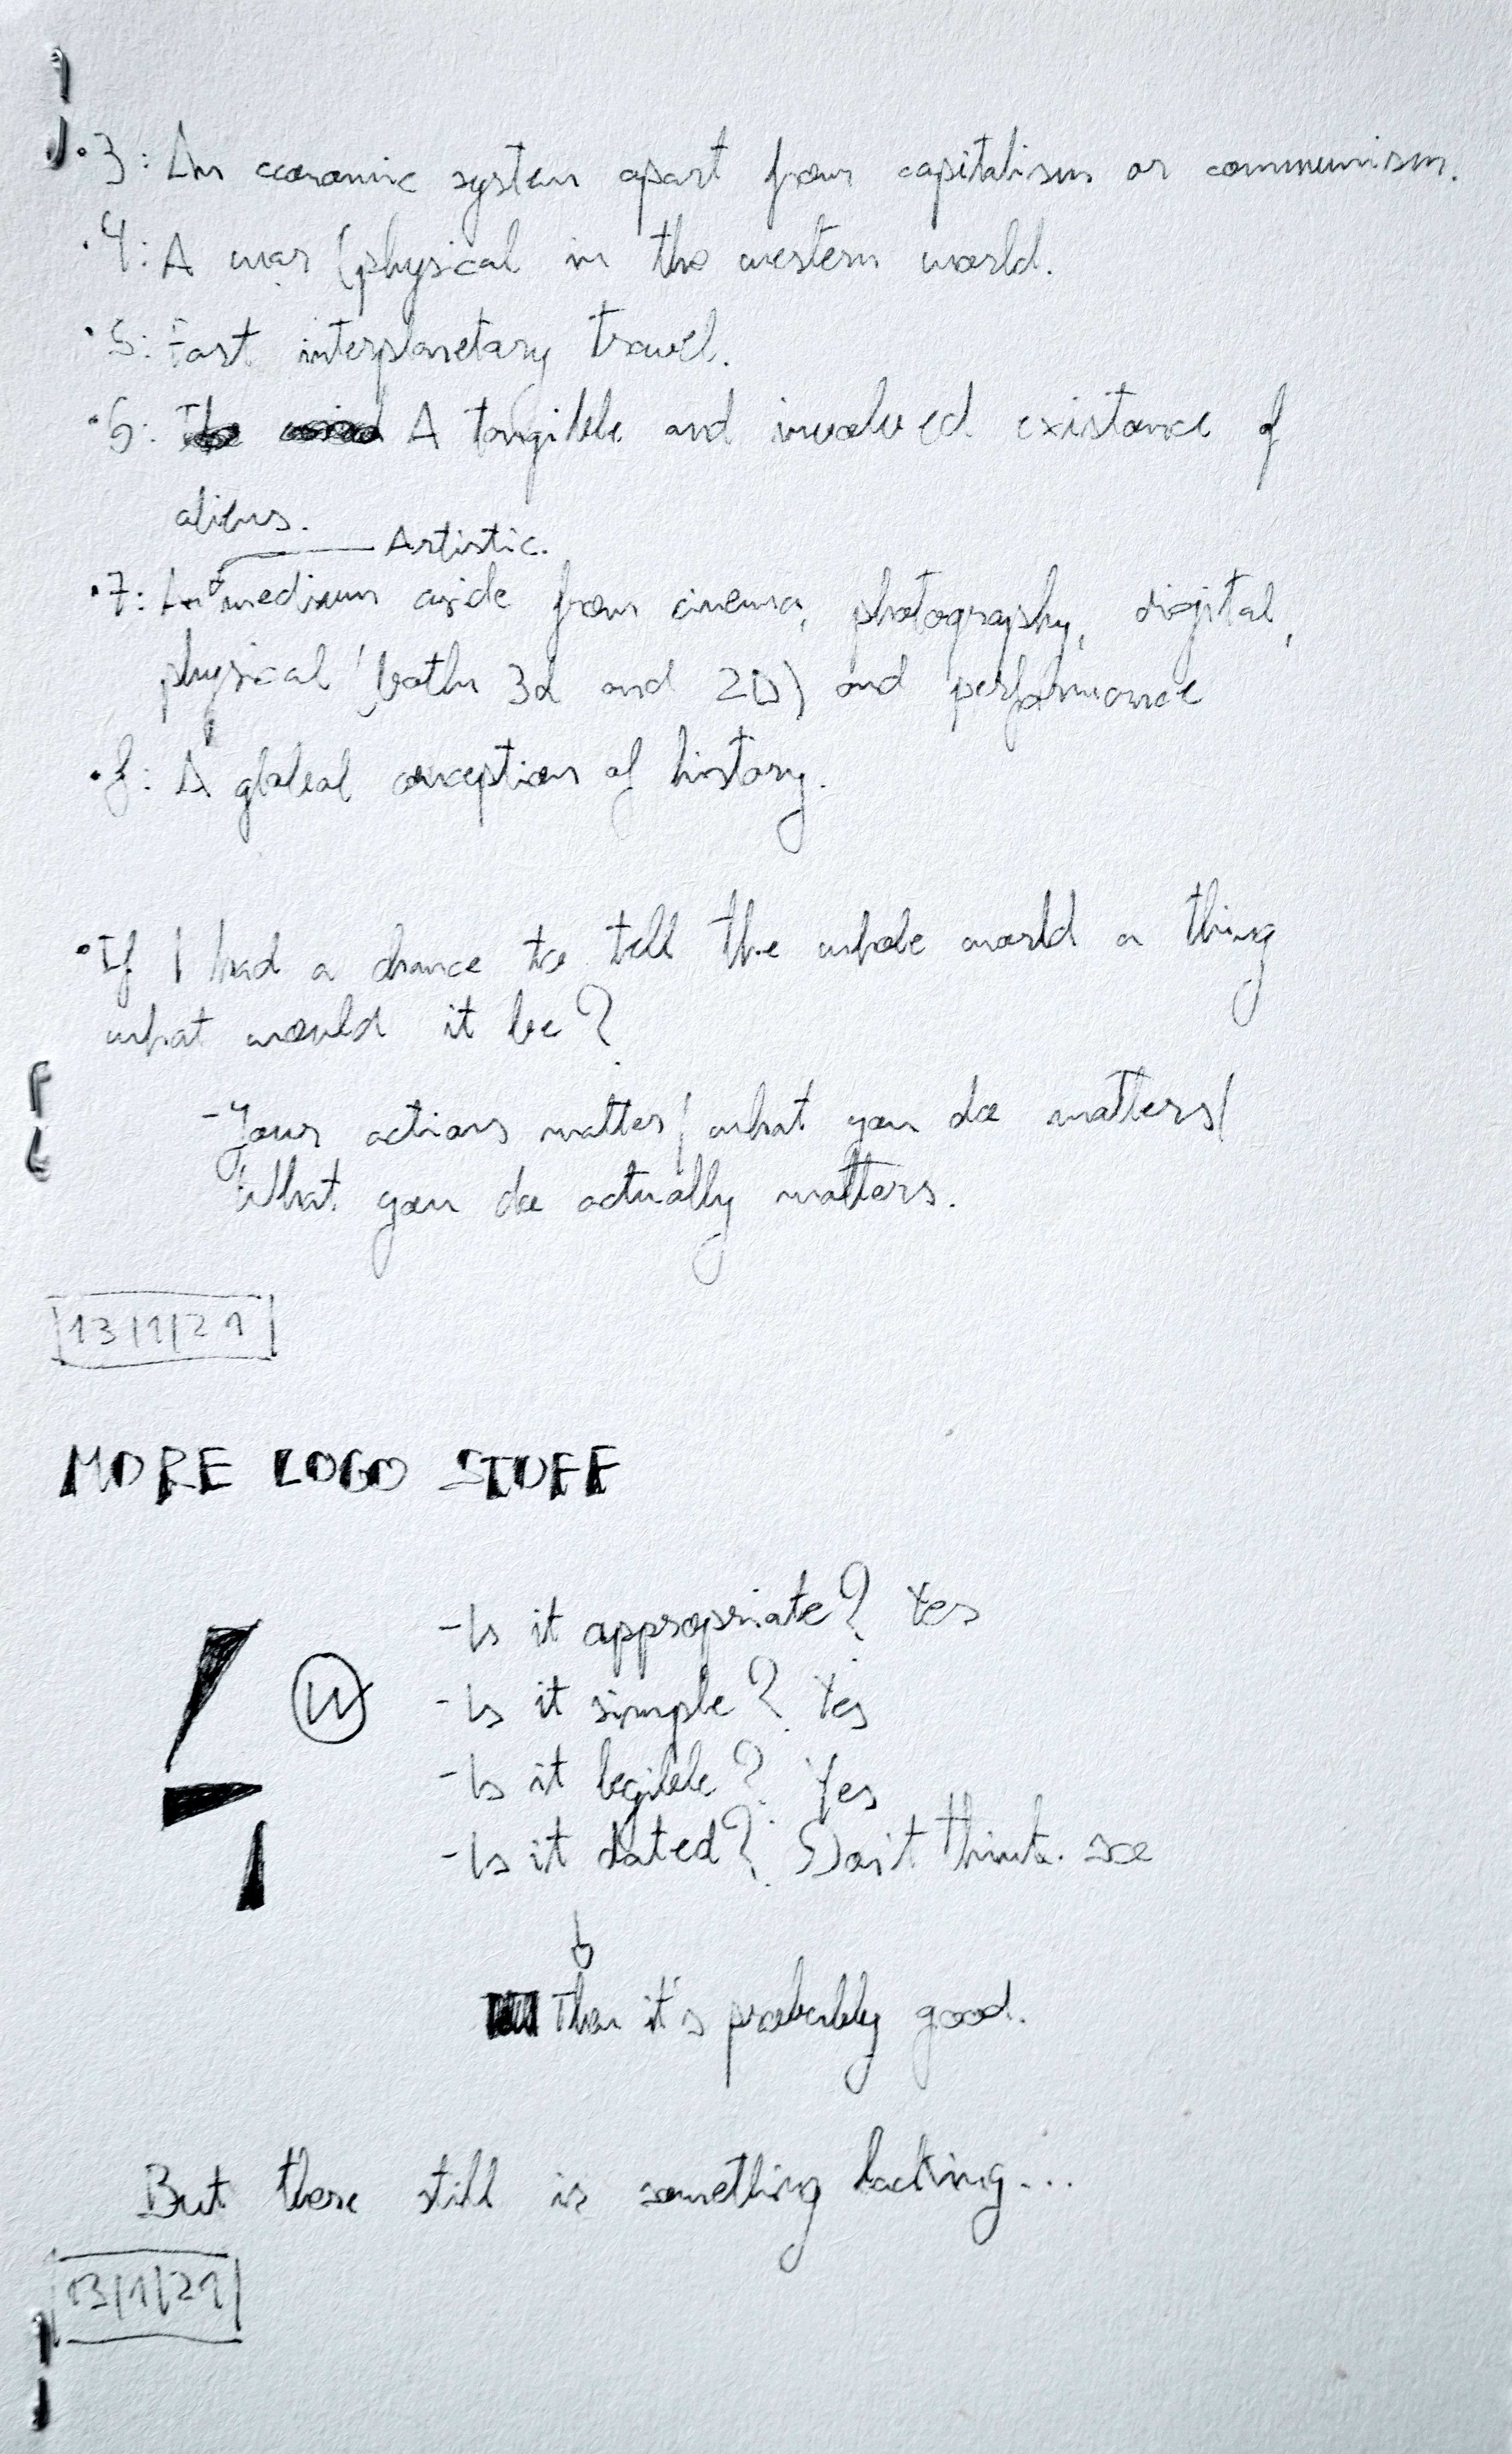 ·3: An economic system apart from capitalism or communism.
·4: A war (physical in the western world.
·5: Fast interplanetary travel.
·6: A tangible and involved existance of
aliens.
Artistic.
·7: An medium aside from cinema, photography, digital,
physical (both 3d and 2D) and performance
·8: A global conception of history.
·If I had a chance to tell the whole world a thing
what would it be?
-Your actions matter/ what you do matters/
What you do actually matters.
13/1/21
MORE LOGO STUFF
-Is it appropriate? Yes
W
-Is it simple? Yes
-Is it legible? Yes
-Is it dated? Don't think so
Then it's probably good.
But there still is something lacking...
13/1/21